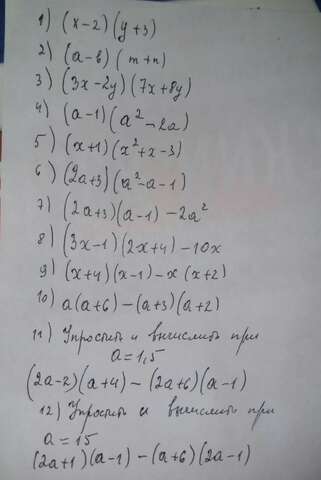 1) (x-2)(y+3)
2) (a-b)(m+n)
3) (3x-2y)(7x+8y)
4) (a-1)(a²-2a)
5) (x+1)(x²+x-3)
6) (2a+3)(a²-a-1)
7) (2a+3)(a-1)-2a²
8) (3x-1)(2x+4)-10x
9) (x+4)(x-1)-x(x+2)
10) a(a+6)-(a+3)(a+2)
11) Упростить и вычислить при
a=1,5
(2a-2)(a+4)-(2a+6)(a-1)
12) Упростить и вычислить при
a=15
(2a+1)(a-1)-(a+6)(2a-1)